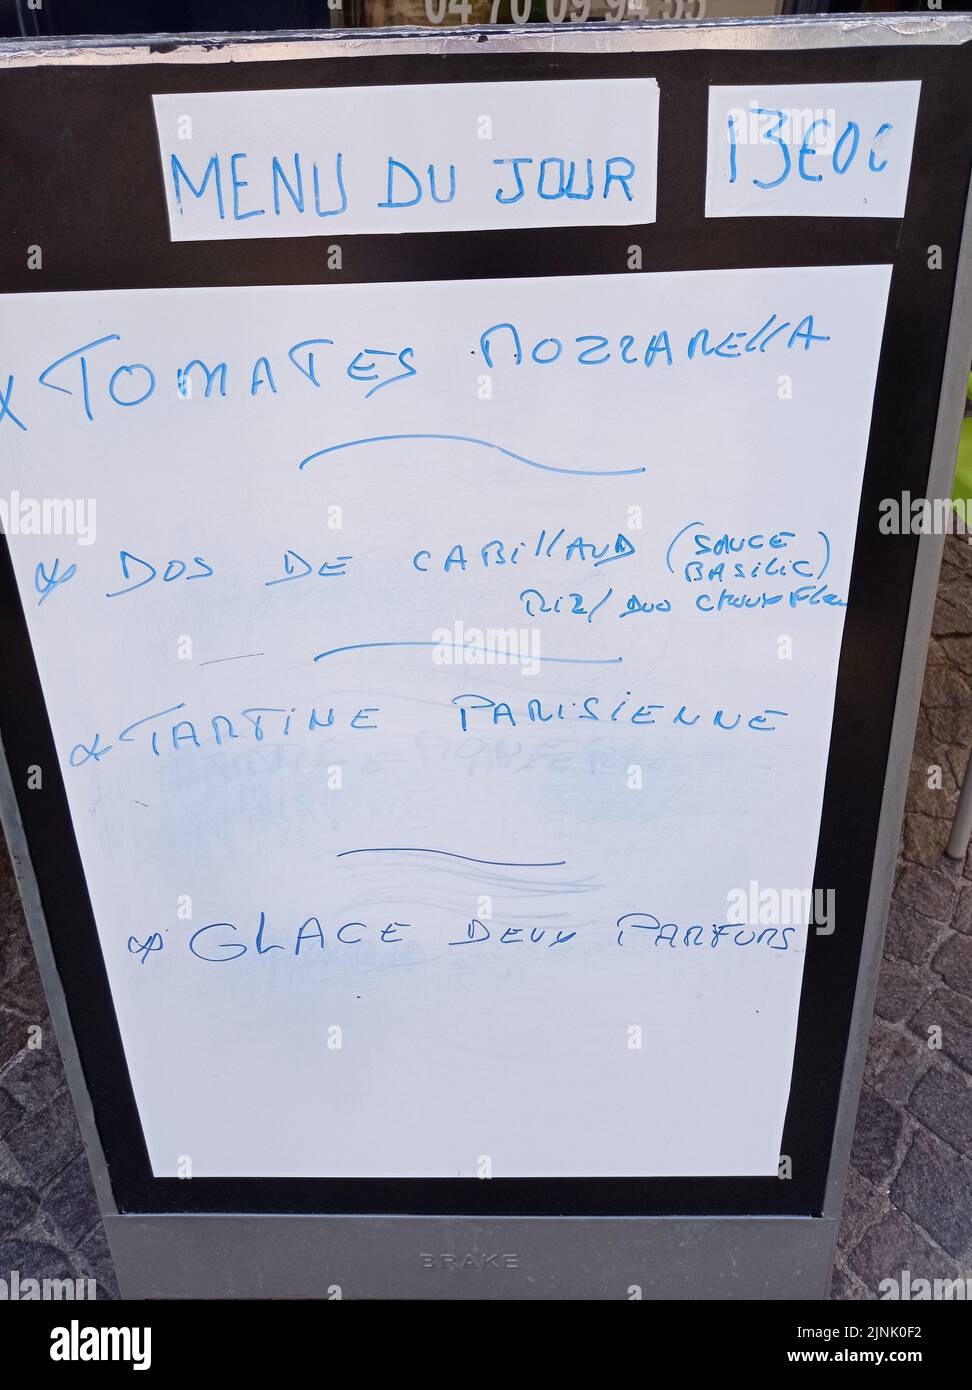 04 70 09 94 55
MENU DU JOUR
13€00
x TOMATES MOZZARELLA
x DOS DE CABILLAUD (SAUCE
BASILIC)
RIZ/ DUO CHOUX Fleu
x TARTINE PARISIENNE
x GLACE DEUX PARFUMS
BRAKE
alamy
Image ID: 2JNK0F2
www.alamy.com